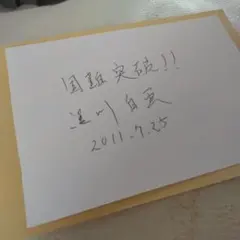 困難突破!!
川自
2011.7.25